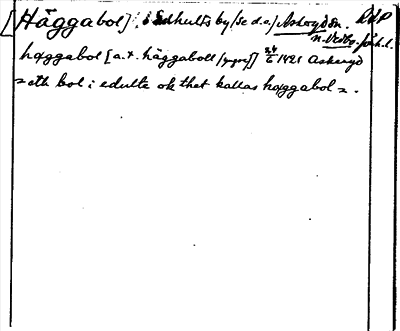 [Häggabol] i Edhults by (se d.o.) Askeryd sn. RAP
n. Vedbo h.
haggabol [a.t. häggaboll] 24/6 1421 Askeryd
= eth bol i edulte ok thet kallas haggabol =.